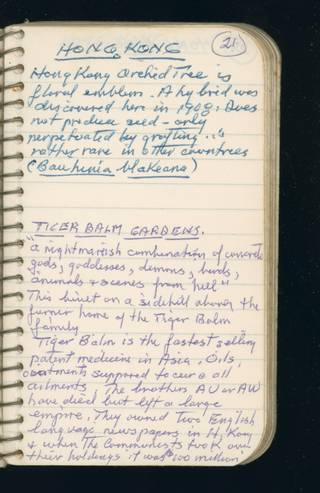 21
HONG KONG
Hong Kong Orchid Tree is
floral emblem. A hybrid was
discovered here in 1908. Does
not produce seed - only
perpetuated by grafting. is
rather rare in other countries
(Bauhinia blakeana)
TIGER BALM GARDENS.
"a nightmarish combination of concrete
gods, goddesses, demons, birds,
animals & scenes from hell"
This built on a sidehill above the
former home of the Tiger Balm
family
Tiger Balm is the fastest selling
patent medicine in Asia. Oils,
ointments supposed to cure all
ailments. The brothers AU or AW
have died but left a large
empire. They owned two English
language newspapers in H. Kong
& when the Communists took over
their holdings it was $100 million